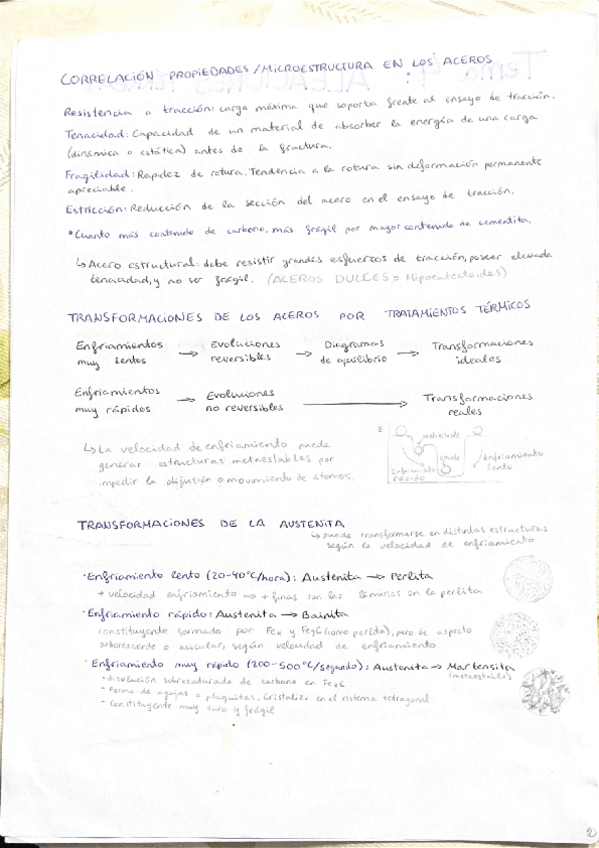 CORRELACIÓN PROPIEDADES/MICROESTRUCTURA EN LOS ACEROS
Resistencia a tracción: carga máxima que soporta frente al ensayo de tracción.
Tenacidad: Capacidad de un material de absorber la energía de una carga
(dinámica o estática) antes de la fractura.
Fragilidad: Rapidez de rotura. Tendencia a la rotura sin deformación permanente
apreciable.
Estricción: Reducción de la sección del acero en el ensayo de tracción.
*Cuanto más contenido de carbono, más frágil por mayor contenido de cementita
↳ Acero estructural: debe resistir grandes esfuerzos de tracción, poseer elevada
tenacidad, y no ser frágil. (ACEROS DULCES = Hipoeutectoides)
TRANSFORMACIONES DE LOS ACEROS POR TRATAMIENTOS TÉRMICOS
Enfriamientos muy lentos → Evoluciones reversibles → Diagramas de equilibrio → Transformaciones ideales
Enfriamientos muy rápidos → Evoluciones no reversibles → Transformaciones reales
↳ La velocidad de enfriamiento puede
generar estructuras metaestables por
impedir la difusión o movimiento de átomos.
E
metaestable
estable
Enfriamiento rápido
Enfriamiento lento
TRANSFORMACIONES DE LA AUSTENITA
↳ puede transformarse en distintas estructuras
según la velocidad de enfriamiento
·Enfriamiento lento (20-40°C/hora): Austenita → Perlita
+ velocidad enfriamiento → + finas son las láminas en la perlita
·Enfriamiento rápido: Austenita → Bainita
constituyente formado por Feα y Fe3C (como perlita), pero de aspecto
arborescente o acicular, según velocidad de enfriamiento
·Enfriamiento muy rápido (200-500°C/segundo): Austenita → Martensita
(metaestable)
- disolución sobresaturada de carbono en Feα
- Forma de agujas o plaquitas. Cristaliza en el sistema tetragonal
- Constituyente muy duro y frágil
2